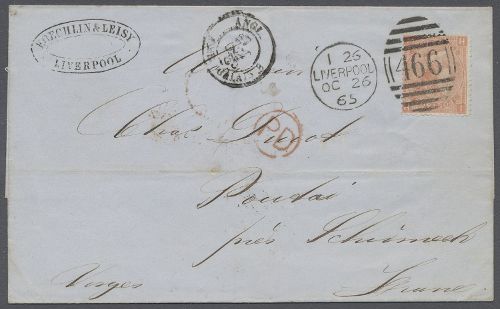 KOECHLIN & LEISY
LIVERPOOL
ANGL
CALAIS
1 26
LIVERPOOL
OC 26
65
466
Monsieur
Chas
PD
près Schirmeck
Vosges
France